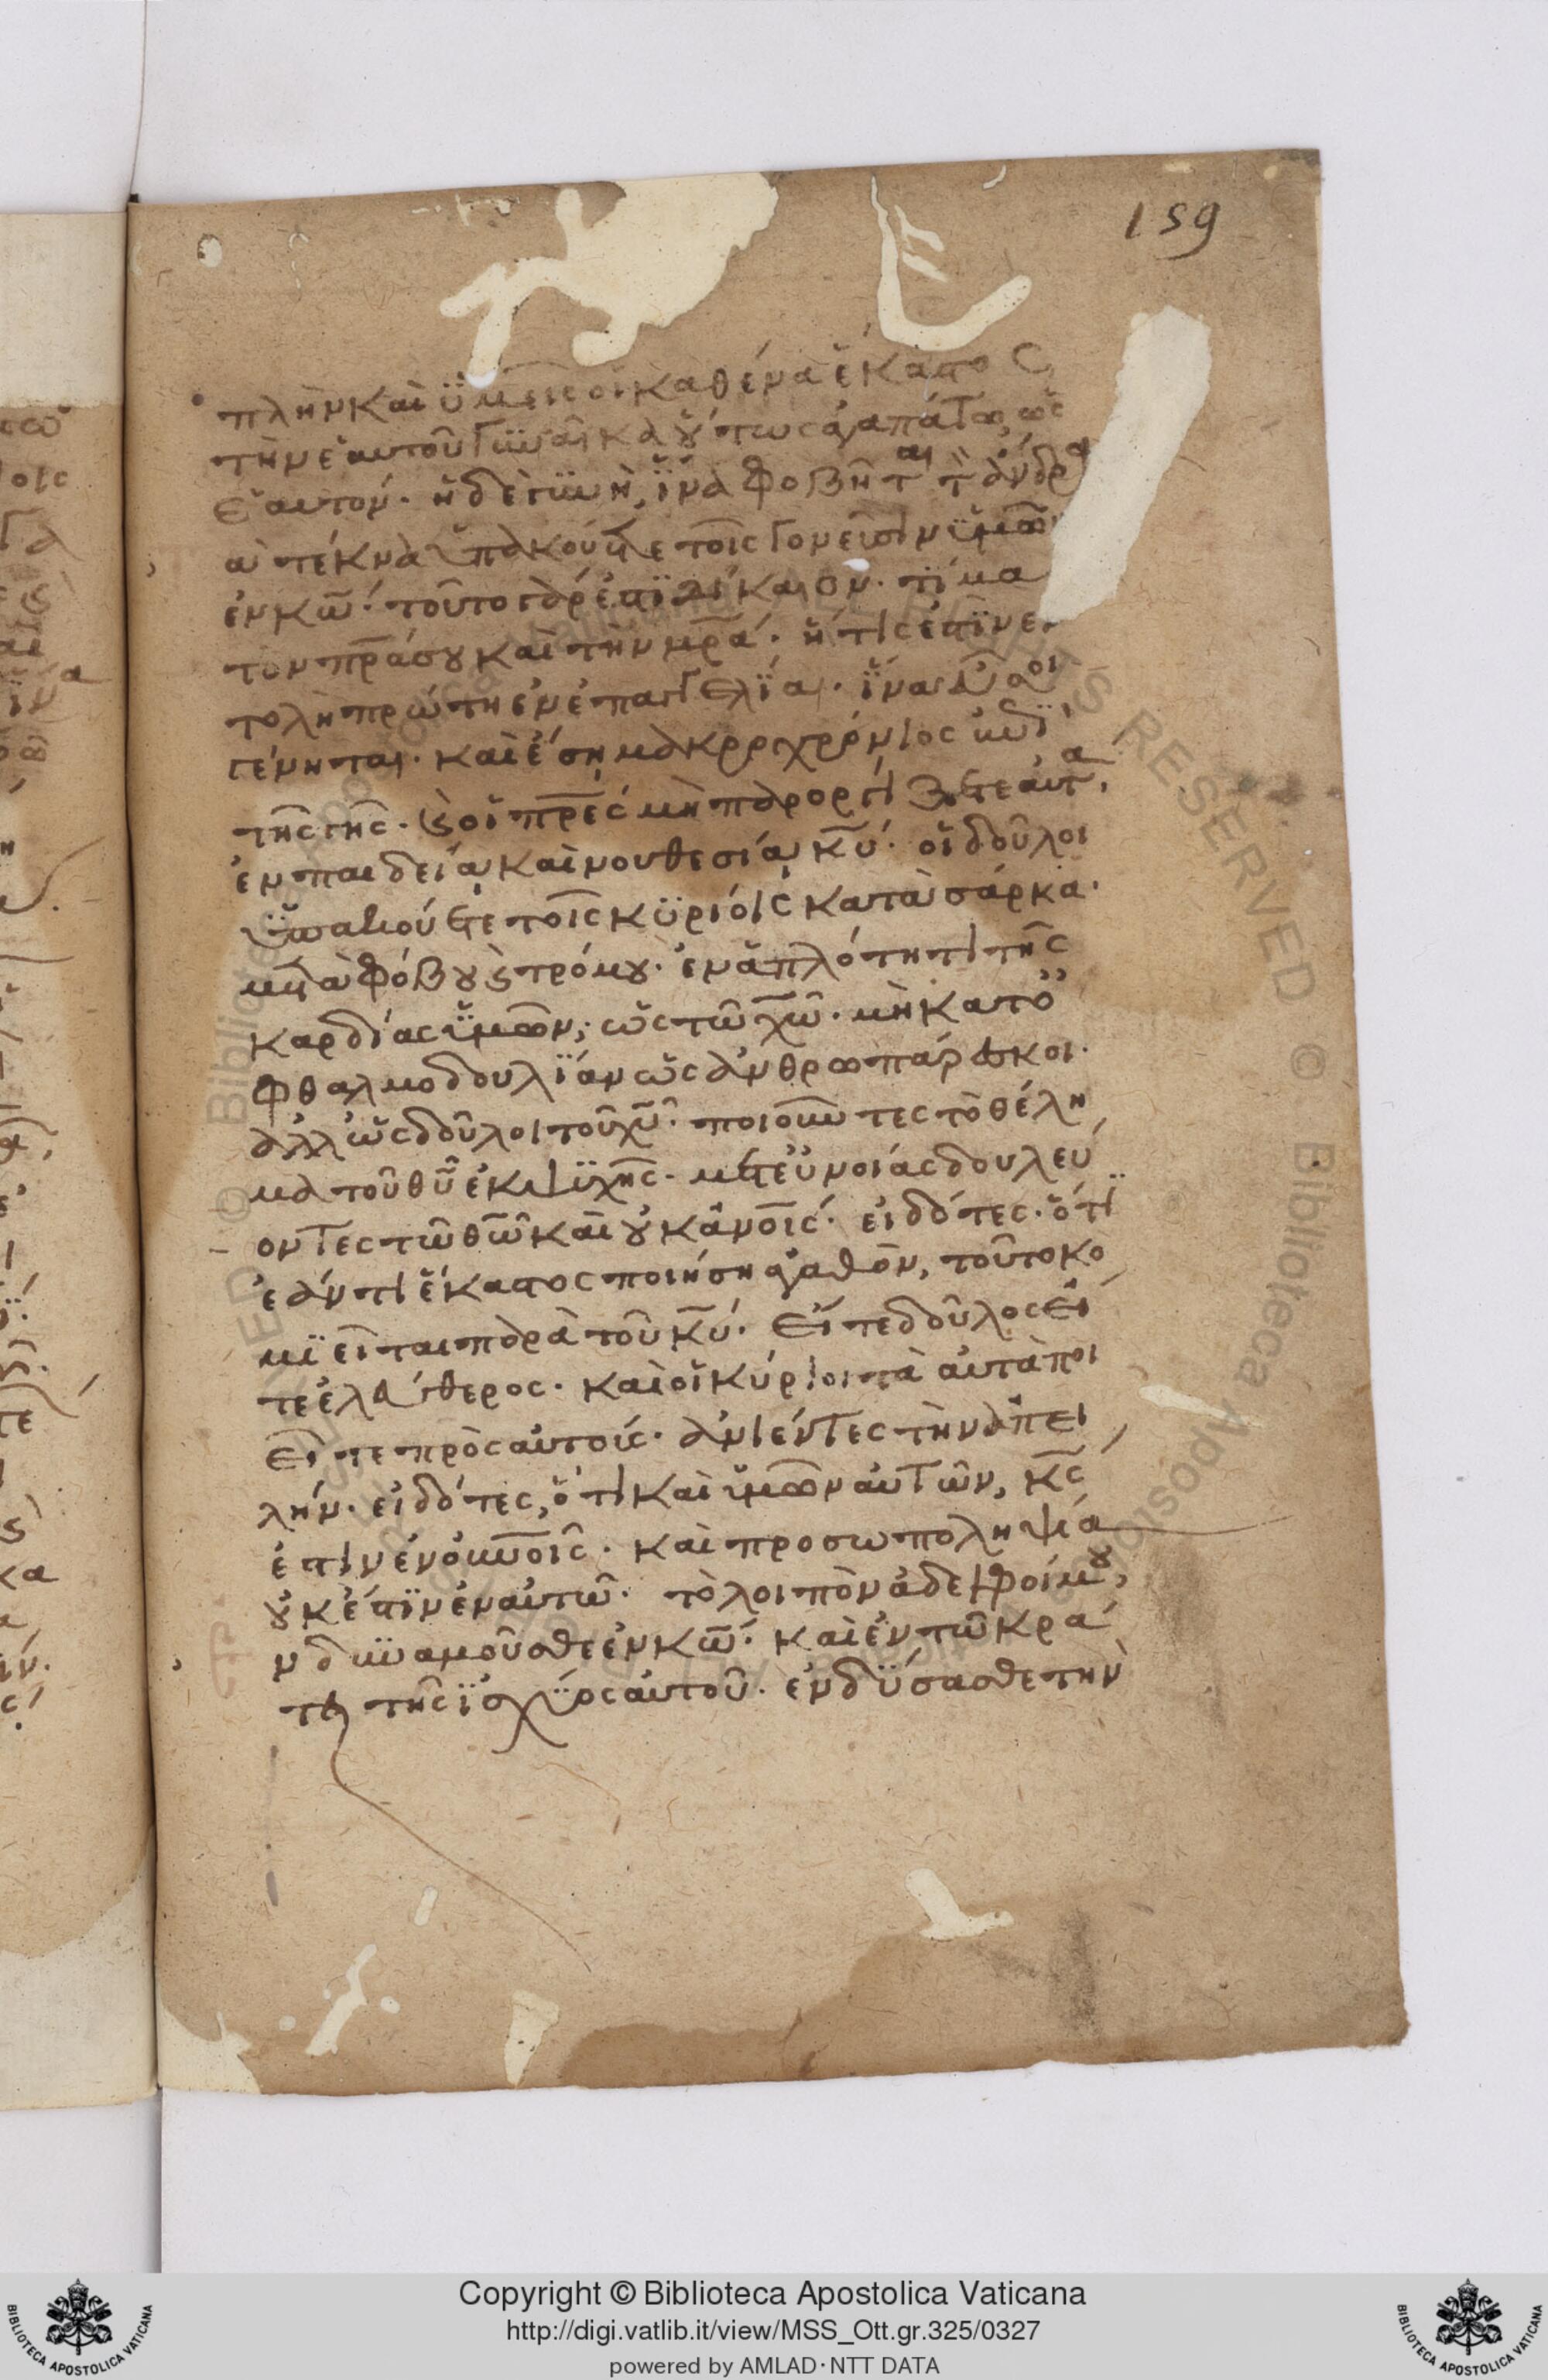 159
πλὴν καὶ ὑμεῖς οἱ καθένα ἕκαστος
τὴν ἑαυτοῦ γυναῖκα οὕτως ἀγαπάτω, ὡς
ἑαυτόν. ἡ δὲ γυνὴ, ἵνα φοβῆται τὸν ἄνδρα
τὰ τέκνα ὑπακούετε τοῖς γονεῦσιν ὑμῶν
ἐν κῶ. τοῦτο γάρ ἐστι δίκαιον. τίμα
τὸν πρα σου καὶ τὴν μρα. ἥτις ἐστὶν ἐν
τολὴ πρώτη ἐν ἐπαγγελία. ἵνα εὖ σοι
γένηται. καὶ ἔση μακροχρόνιος ἐπὶ
τῆς γῆς. καὶ οἱ πρες μὴ παροργίζετε αὐτὰ
ἐν παιδεία καὶ νουθεσία κυ. οἱ δοῦλοι
ὑπακούετε τοῖς κυρίοις κατὰ σάρκα.
μετὰ φόβου καὶ τρόμου. ἐν ἁπλότητι τῆς
καρδίας ὑμῶν, ὡς τῶ χῶ. μὴ κατ' ὀ
φθαλμοδουλίαν ὡς ἀνθρωπάρεσκοι.
ἀλλ' ὡς δοῦλοι τοῦ χυ. ποιοῦντες τὸ θέλη
μα τοῦ θυ ἐκ ψυχῆς. μετ' εὐνοίας δουλεύ
οντες τῶ θῶ καὶ οὐκ ἀνοις. εἰδότες. ὅτι
ἐάν τι ἕκαστος ποιήση ἀγαθὸν, τοῦτο κο
μιεῖται παρὰ τοῦ κυ. εἴτε δοῦλος εἴ
τε ἐλεύθερος. καὶ οἱ κύριοι τὰ αὐτὰ ποι
εῖτε πρὸς αὐτούς. ἀνιέντες τὴν ἀπει
λήν. εἰδότες, ὅτι καὶ ὑμῶν αὐτῶν, κς
ἐστιν ἐν οὐνοις. καὶ προσωποληψία
οὐκ ἔστιν ἐν αὐτῶ. τὸ λοιπὸν ἀδελφοί μου,
νδυναμοῦσθε ἐν κῶ. καὶ ἐν τῶ κρά
τει τῆς ἰσχύος αὐτοῦ. ἐνδύσασθε τὴν
Copyright © Biblioteca Apostolica Vaticana
http://digi.vatlib.it/view/MSS_Ott.gr.325/0327
powered by AMLAD·NTT DATA